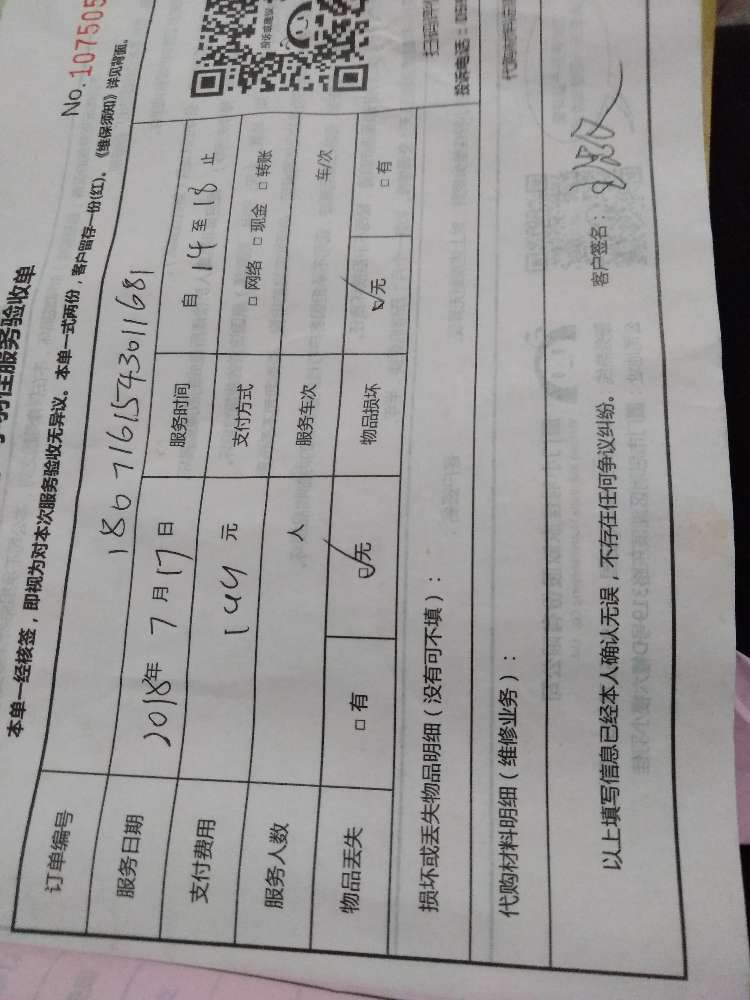 好住服务验收单
No. 107505
本单一经核签，即视为对本次服务验收无异议。本单一式两份，客户留存一份(红)。《维保须知》详见背面。
订单编号 1807161543011681
服务日期 2018年 7 月 17 日 服务时间 自 14 至 18 止
支付费用 144 元 支付方式 □ 网络 □ 现金 □ 转账
服务人数 人 服务车次 车/次
物品丢失 □ 有 ☑ 无 物品损坏 ☑ 无 □ 有
损坏或丢失物品明细（没有可不填）：
投诉或建议
扫码
投诉电话：059
代购材料明细（维修业务）：
代购材料
以上填写信息已经本人确认无误，不存在任何争议纠纷。 客户签名：